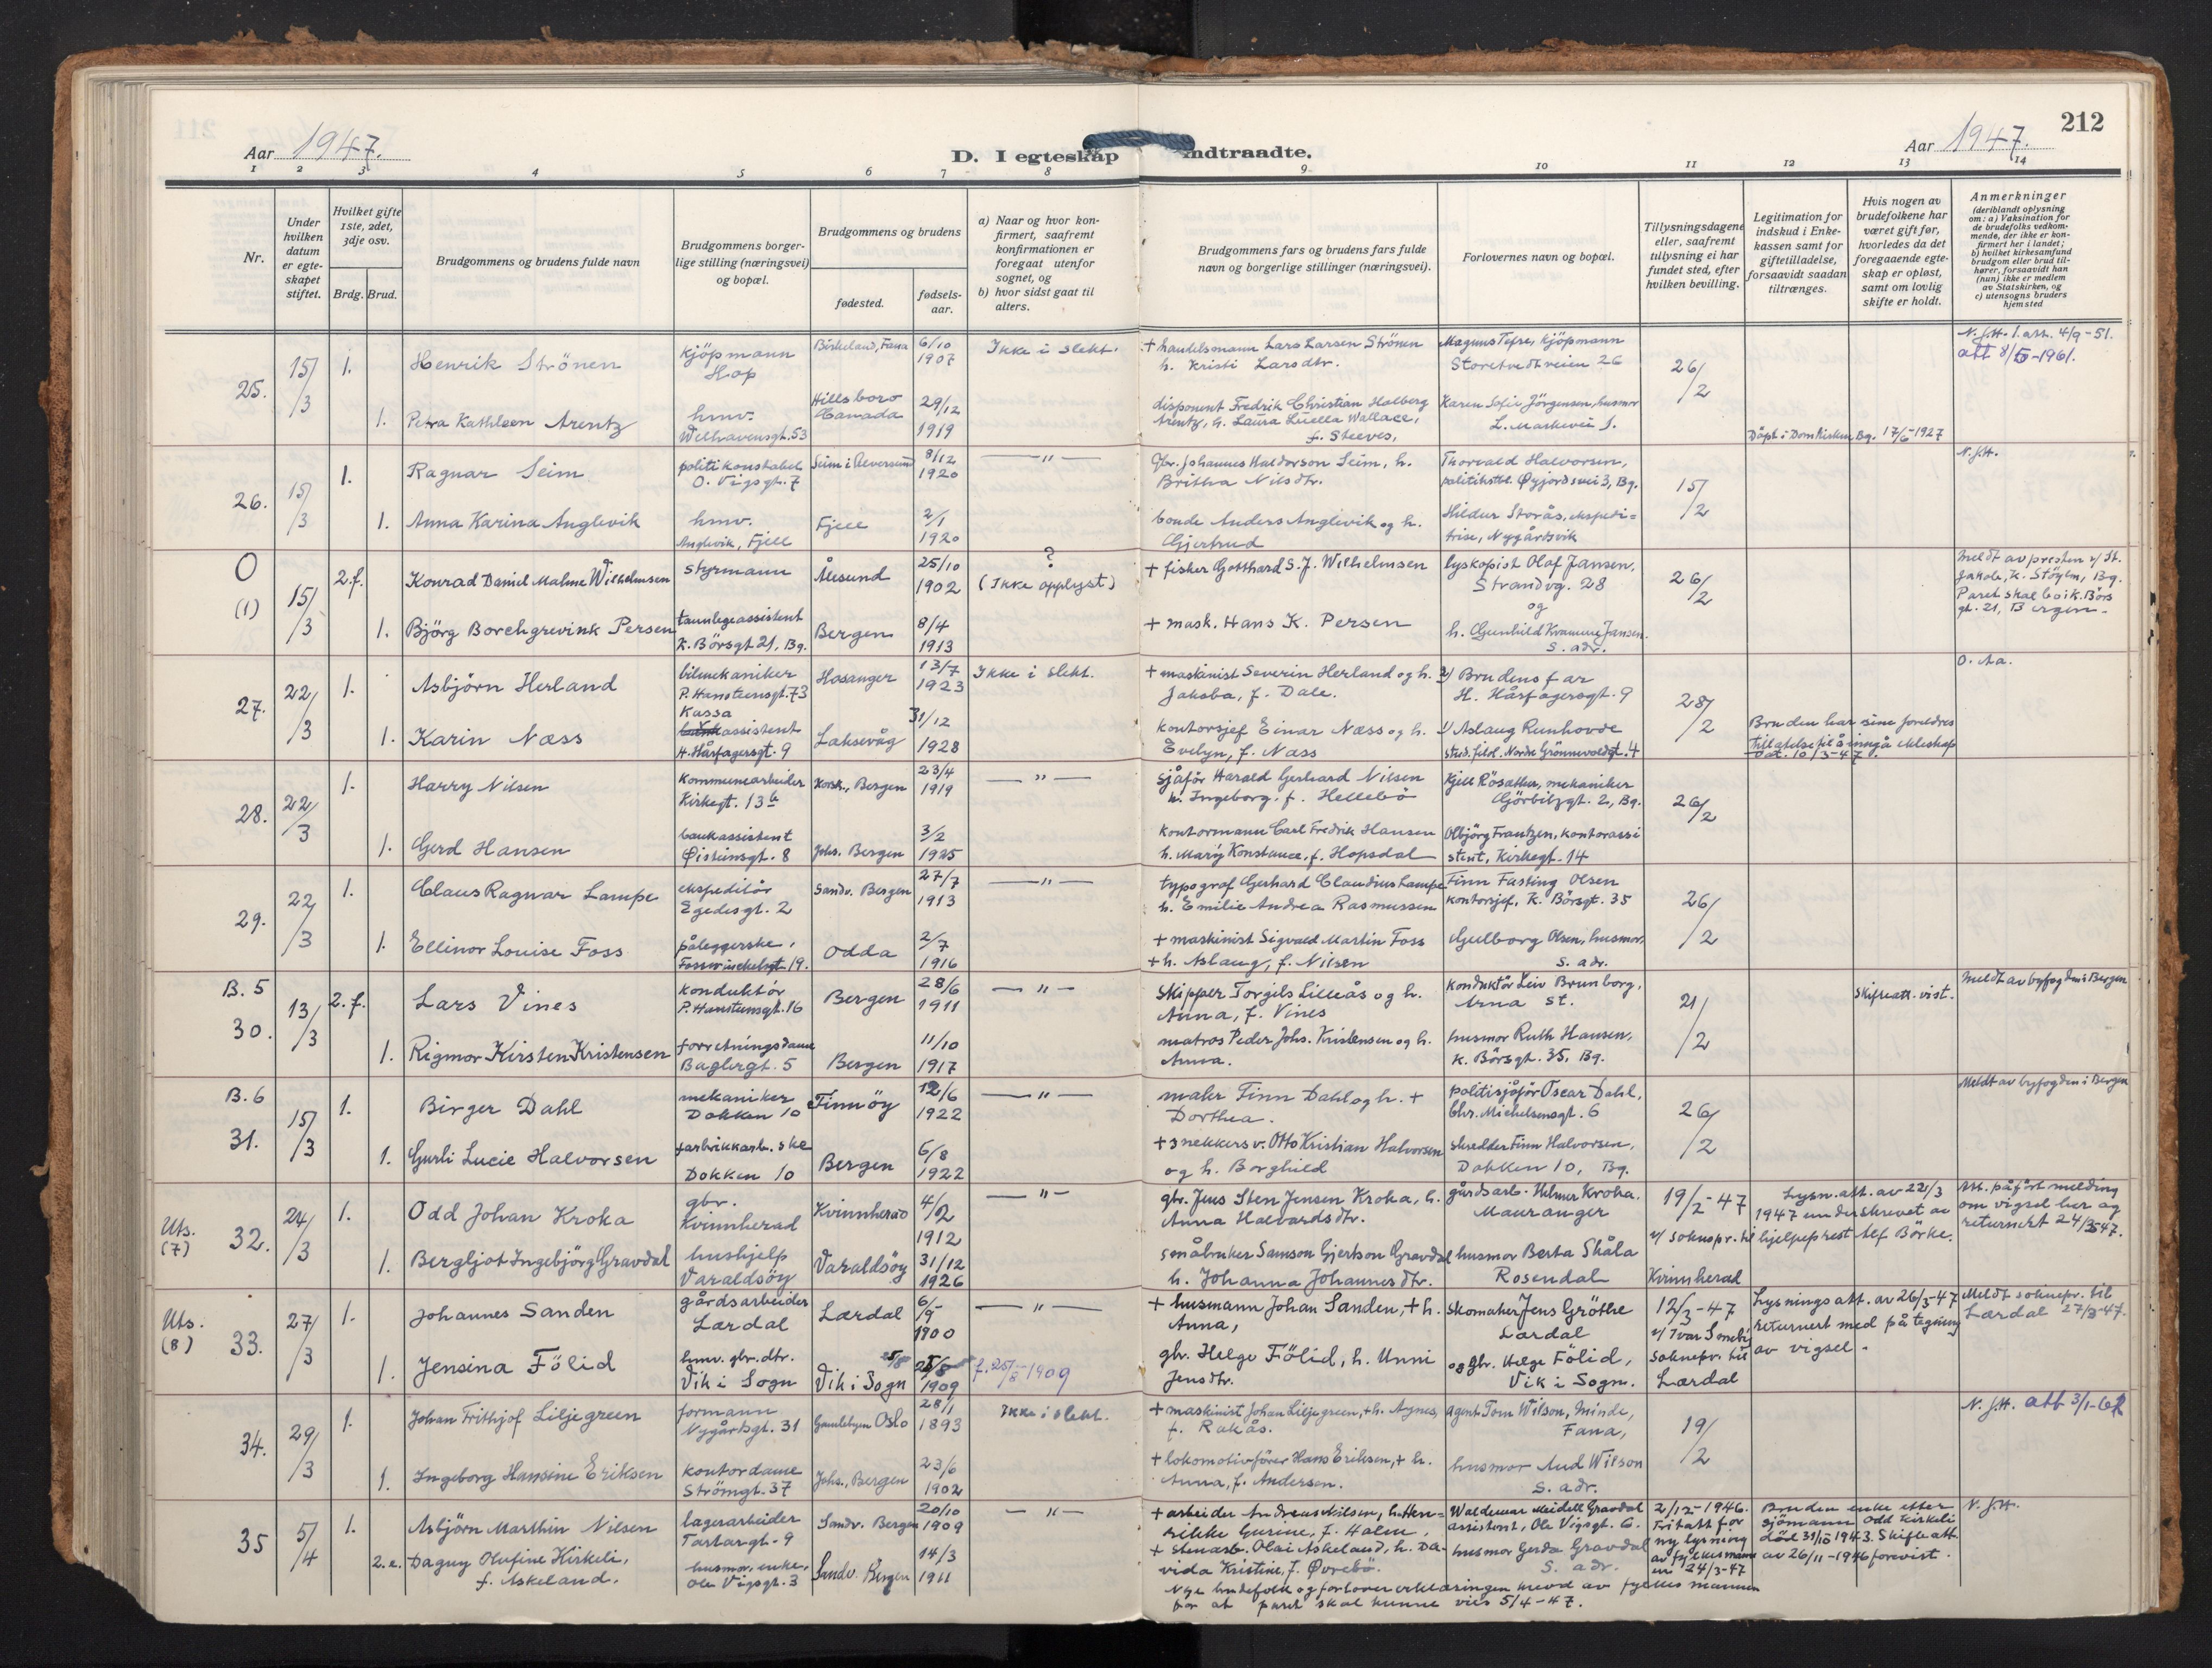 Aar 1947.
D. I egteskap indtraadte.
Aar 1947.
212
1 2 3 4 5 6 7 8 9 10 11 12 13 14
Nr.
Under hvilken datum er egteskapet stiftet.
Hvilket gifte 1ste, 2det, 3dje osv.
Brdg. Brud.
Brudgommens og brudens fulde navn
Brudgommens borgerlige stilling (næringsvei) og bopæl.
Brudgommens og brudens
fødested.
fødselsaar.
a) Naar og hvor konfirmert, saafremt konfirmationen er foregaat utenfor sognet, og
b) hvor sidst gaat til alters.
Brudgommens fars og brudens fars fulde navn og borgerlige stillinger (næringsvei).
Forlovernes navn og bopæl.
Tillysningsdagene eller, saafremt tillysning ei har fundet sted, efter hvilken bevilling.
Legitimation for indskud i Enkekassen samt for giftetilladelse, forsaavidt saadan tiltrænges.
Hvis nogen av brudefolkene har været gift før, hvorledes da det foregaaende egteskap er opløst, samt om lovlig skifte er holdt.
Anmerkninger
(deriblandt oplysning om: a) Vaksination for de brudefolks vedkommende, der ikke er konfirmert her i landet; b) hvilket kirkesamfund brudgom eller brud tilhører, forsaavidt han (hun) ikke er medlem av Statskirken, og c) utensogns bruders hjemsted
25. 15/3 1. Henrik Strönen kjöpmann Hop Birkeland, Fana 6/10 1907 Ikke i slekt. + handelsmann Lars Larsen Strönen h. Kristi Larsdtr. kjöpmann Storetvedtveien 26 26/2 att 8/5-1961.
1. Petra Kathleen Arentz hmv. Welhavensgt. 53 Hillsboro Canada 29/12 1919 disponent Fredrik Christian Holberg Arentz, h. Laura Luella Wallace, f. Steeves, Karen Sofie Jörgensen, husmor Döpt i Domkirken Bg. 17/6-1927
26. 15/3 1. Ragnar Seim politikonstabel O. Vigsgt. 7 8/12 1920 —"— Gbr. Johannes Haldorson Seim, h. Britha Nilsdtr. Thorvald Halvorsen, Bg. 15/2
1. Anna Karina Anglevik hmv. Anglevik, Fjell Fjell 2/1 1920 bonde Anders Anglevik og h. Gjertrud Hildur Storås, ekspeditrise, Nygårdsvik
O (1) 15/3 2.f. Konrad Daniel Malme Wilhelmsen styrmann Ålesund 25/10 1902 ? (Ikke opplyst) + fisker Gotthard S. J. Wilhelmsen lyskopist Olaf Jansen, Strandvg. 28 og 26/2 Meldt av presten v/ St. Jakob, K. Støylen, Bg. Paret skal bo i K. Börs gt. 21, Bergen.
1. Björg Borchgrevink Persen tannlegeassistent K. Börsgt 21, Bg. Bergen 8/4 1913 + mask. Hans K. Persen h. Gunhild Kvamme Jansen. s. adr.
27. 22/3 1. Asbjörn Herland bilmekaniker P. Hansteensgt. 73 Hosanger 13/7 1923 Ikke i slekt. + maskinist Severin Herland og h. Jakoba, f. Dale. 2/ Brudens far H. Hårfagersgt. 9 28/2
1. Karin Næss Kassaassistent H. Hårfagersgt. 9 Laksevåg 31/12 1928 kontorsjef Einar Næss og h. Evelyn, f. Næss 1/ Aslaug Runhovde Bruden har sine foreldres tillatelse til å inngå ekteskap Dat. 10/3-47.
28. 22/3 1. Harry Nilsen kommunearbeider Kirkegt. 13b Korsk., Bergen 23/4 1919 —"— sjåför Harald Gerhard Nilsen h. Ingeborg, f. Hellebö Kjell Rösæther, mekaniker 2, Bg. 26/2
1. Gerd Hansen bankassistent Øisteinsgt. 8 Johs. Bergen 3/2 1925 kontormann Carl Fredrik Hansen h. Mary Konstance, f. Hopsdal Olbjörg Frantzen, kontorassistent, Kirkegt. 14
29. 22/3 1. Claus Ragnar Lampe ekspeditör Egedesgt. 2 Sandv. Bergen 27/7 1913 —"— typograf Gerhard Claudius Lampe h. Emilie Andrea Rasmussen Finn Fasting Olsen kontorsjef, K. Börsgt. 35 26/2
1. Ellinor Louise Foss påleggerske, Fosswinckelsgt. 19. Odda 2/7 1916 + maskinist Sigvald Martin Foss + h. Aslaug, f. Nilsen Gulborg Olsen, husmor, s. adr.
B. 5 30. 13/3 2.f. Lars Vines konduktör P. Hansteensgt. 16 Bergen 28/6 1911 —"— Skipper Torgils Lilleås og h. Anna, f. Vines konduktör Leiv Brunborg, Arna st. 21/2 Skifteatt. vist. Meldt av byfogden i Bergen
1. Rigmor Kirsten Kristensen forretningsdame Baglergt. 5 Bergen 11/10 1917 matros Peder Johs. Kristensen og h. Anna. husmor Ruth Hansen, K. Börsgt. 35, Bg.
B. 6 31. 15/3 1. Birger Dahl mekaniker Dokken 10 Finnöy 12/6 1922 —"— maler Finn Dahl og h. + Dorthea. politisjåför Oscar Dahl, Chr. Michelsensgt. 6 26/2 Meldt av byfogden i Bergen
1. Gurli Lucie Halvorsen fabrikkarb.ske Dokken 10 Bergen 6/8 1922 + snekkersv. Otto Kristian Halvorsen og h. Borghild skredder Finn Halvorsen, Dokken 10, Bg.
Uts. (7) 32. 24/3 1. Odd Johan Kroka gbr. Kvinnherad Kvinnherad 4/2 1912 —"— gbr. Jens Sten Jensen Kroka, h. Anna Halvardsdtr. gårdsarb. Helmer Kroka. Mauranger 19/2-47 v/ soknepr. til Kvinnherad Lysn. att. av 22/3 1947 underskrevet av hjelpeprest Alf Börke. Att. påfört melding om vigsel her og returnert 24/3-47.
1. Bergljot Ingebjörg Gravdal hushjelp Varaldsöy Varaldsöy 31/12 1926 småbruker Samson Gjertson Gravdal h. Johanna Johannesdtr. husmor Berta Skåla Rosendal
Uts. (8) 33. 27/3 1. Johannes Sanden gårdsarbeider Lærdal Lærdal 6/9 1900 —"— + husmann Johan Sanden, + h. Anna, skomaker Jens Gröthe Lærdal 12/3-47 v/ Ivar soknepr. til Lærdal Lysningsatt. av 26/3-47 returnert med påtegning av vigsel. Meldt soknepr. til Lærdal 27/3-47.
1. Jensina Fölid hmv. gbr. dtr. Vik i Sogn Vik i Sogn 25/8 1909 f. 25/8-1909 gbr. Helge Fölid, h. Unni Jensdtr. og gbr. Helge Fölid, Vik i Sogn.
34. 29/3 1. Johan Frithjof Liljegreen formann Nygårdsgt. 31 Gamlebyen Oslo 28/1 1893 Ikke i slekt. + maskinist Johan Liljegreen, + h. Agnes, f. Rakås. agent Tom Wilson, Minde, Fana, 19/2 att 3/1-62
1. Ingeborg Hansine Eriksen kontordame Strömgt. 37 Johs., Bergen 23/6 1902 + lokomotivförer Hans Eriksen, + h. Anna, f. Andersen. husmor Aud Wilson s. adr.
35 5/4 1. Asbjörn Marthin Nilsen lagerarbeider Tartargt. 9 Sandv. Bergen 20/10 1909 —"— + arbeider Andreas Nilsen, h. Henrikke Gurine, f. Holm, Waldemar Meidell Gravdal assistent, Ole Vigsgt. 6. 2/12-1946. Fritatt for ny lysning av fylkesmannen 24/3-47 Bruden enke etter sjömann Odd Kirkeli död 31/10 1943. Skifteatt. av 26/11-1946 forevist.
2.e. Dagny Olufine Kirkeli, f. Askeland. husmor, enke, Ole Vigsgt. 3 Sandv. Bergen 14/3 1911 + stenarb. Olai Askeland, h. Davida Kristine, f. Øvrebö. husmor Gerda Gravdal S. adr.
Nye brudefolk og forlovererklæringen krevd av fylkesmannen for at paret skal kunne vies 5/4-47.